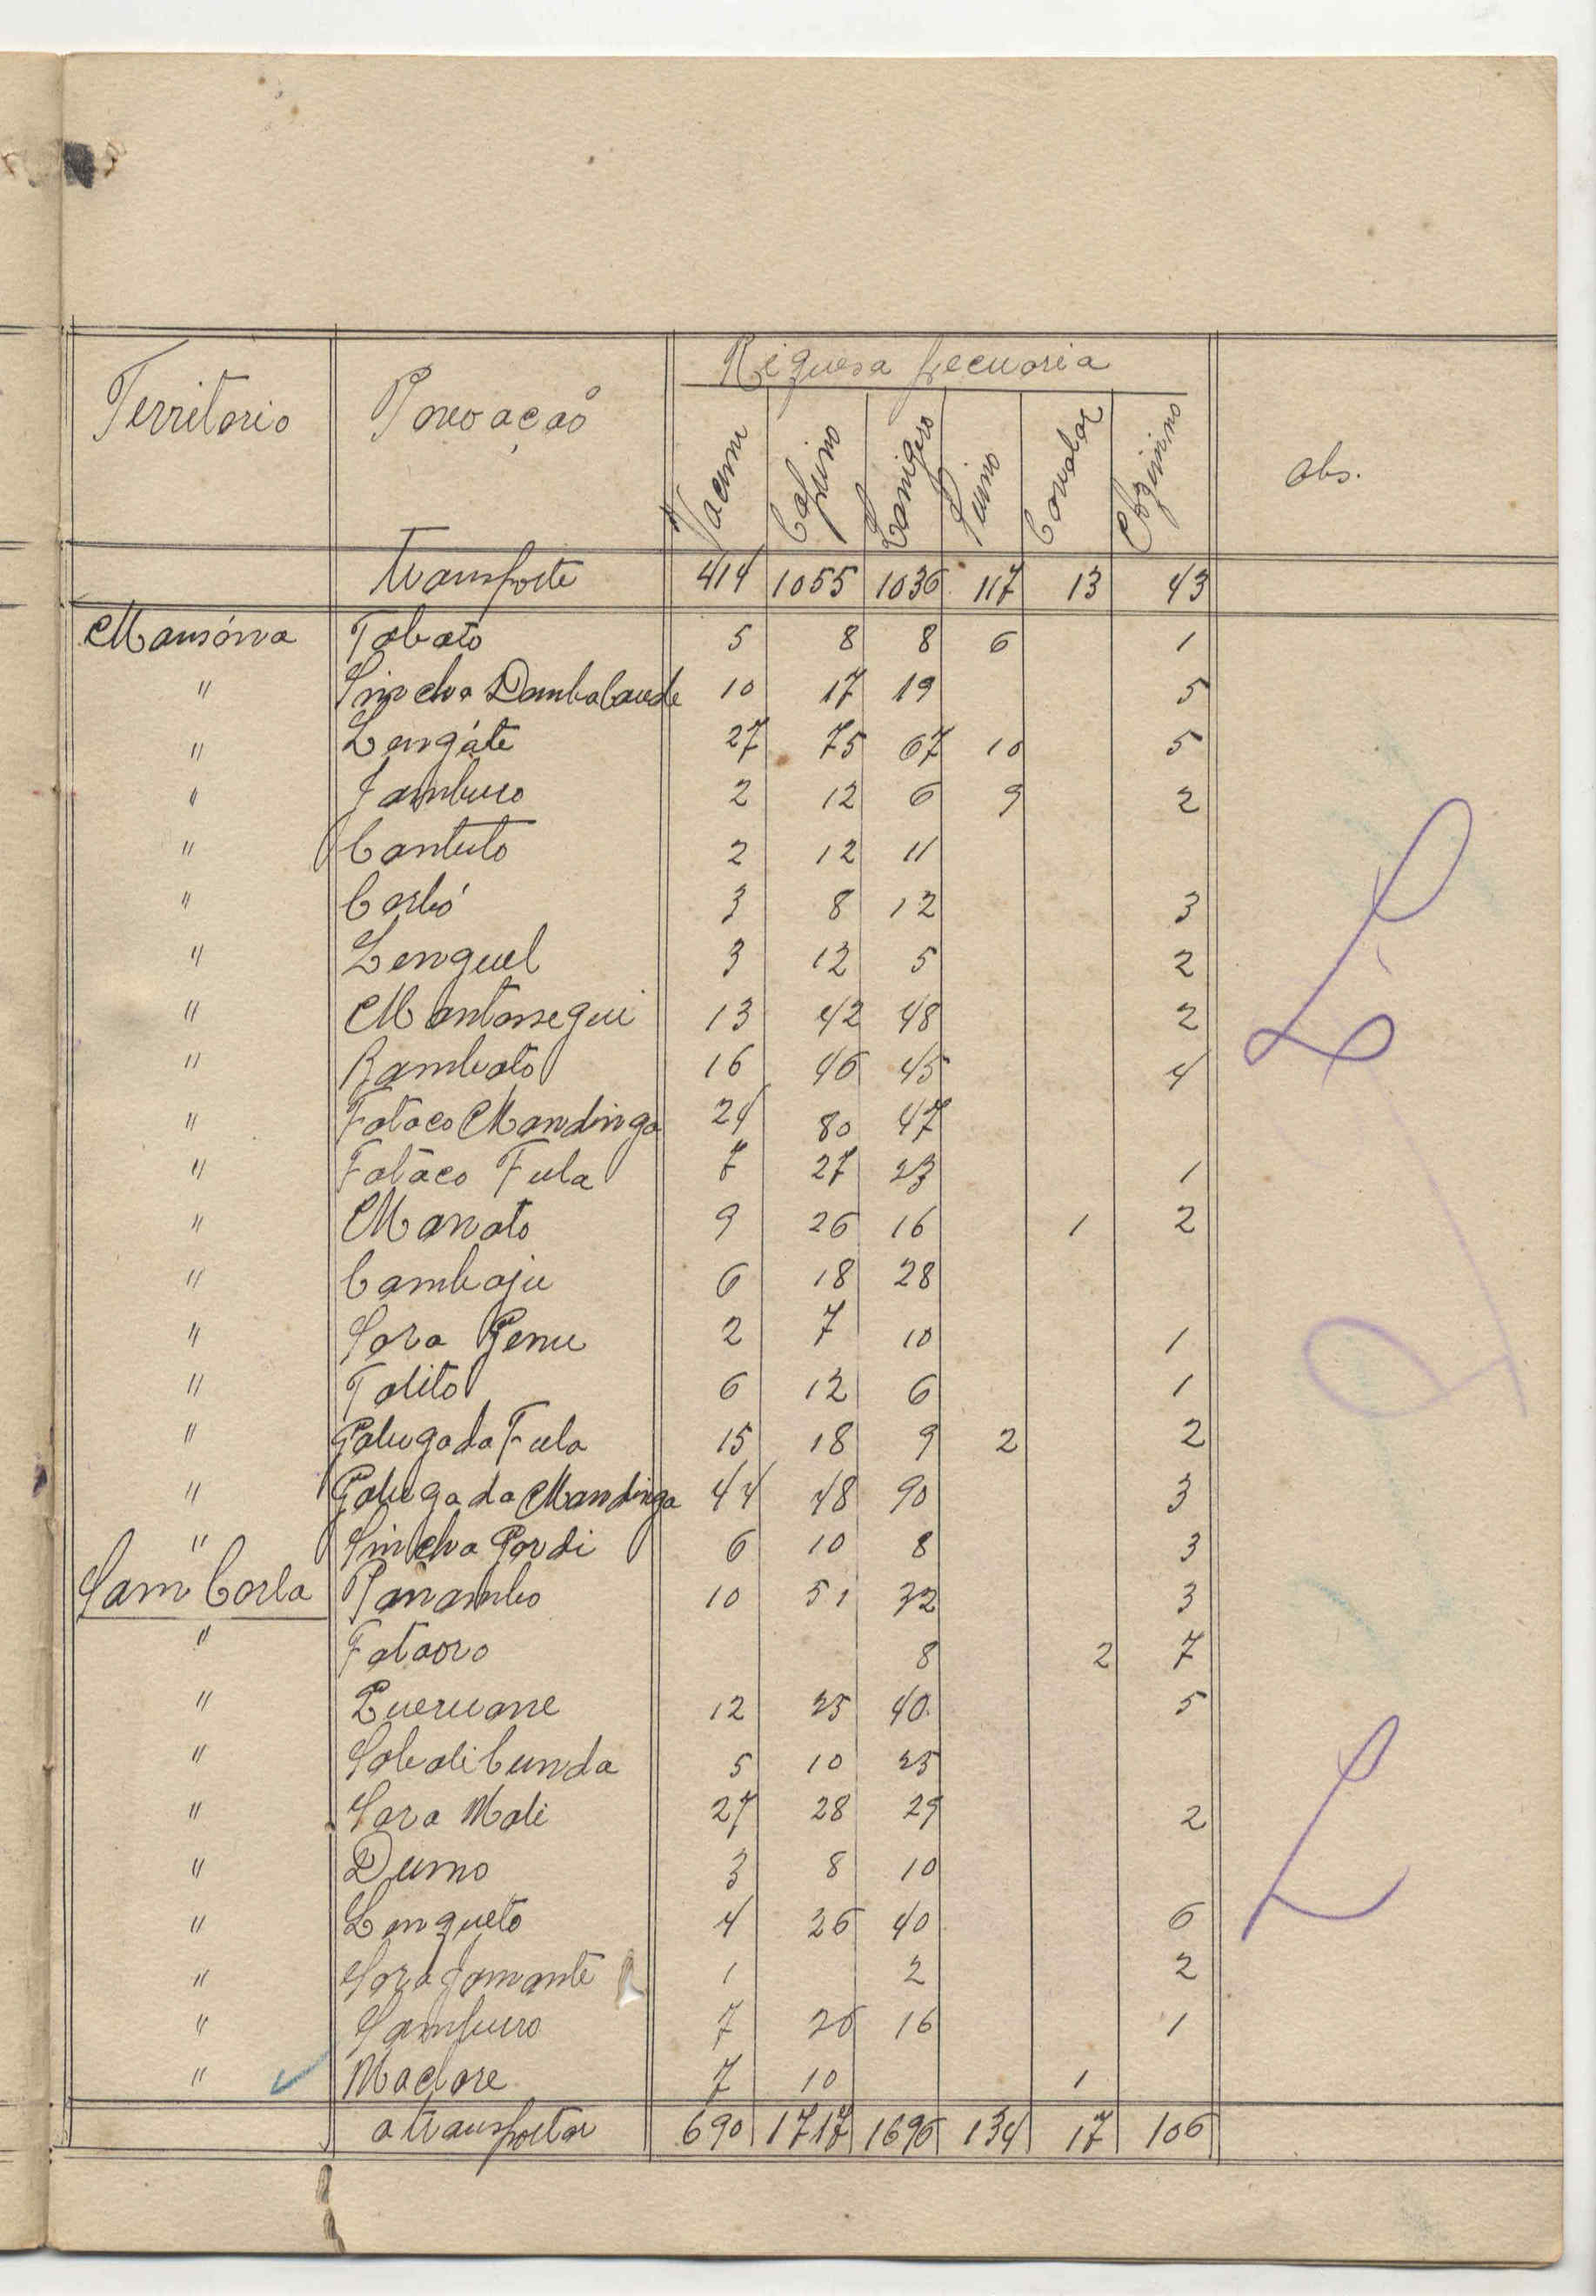 Riquesa pecuaria
Territorio Povoação Vacum Caprino Lanigero Suino Cavalar Azinino Obs.
Transporte 414 1055 1036 117 13 43
Mansôna Tabato 5 8 8 6 1
" Sincha Dambalaude 10 17 19 5
" Lengáte 27 75 67 10 5
" Jambuco 2 12 6 9 2
" Cantuto 2 12 11
" Carbó 3 8 12 3
" Lenguel 3 12 5 2
" Mantansegui 13 42 48 2
" Bambato 16 46 45 4
" Fataco Mandinga 24 80 47
" Fatáco Fula 7 27 23 1
" Manato 9 26 16 1 2
" Cambaju 6 18 28
" Sara 2 7 10 1
" Talito 6 12 6 1
" Galugada Fula 15 18 9 2 2
" Galugada Mandinga 44 48 90 3
" Sincha 6 10 8 3
Sam Corla Panambo 10 51 32 3
" 8 2 7
" 12 25 40 5
" Sabali Cunda 5 10 25
" Sara Mali 27 28 29 2
" Dumo 3 8 10
" Langueto 4 26 40 6
" Sara Jamante 1 2 2
" 7 26 16 1
" Maclare 7 10 1
a transportar 690 1717 1696 134 17 106